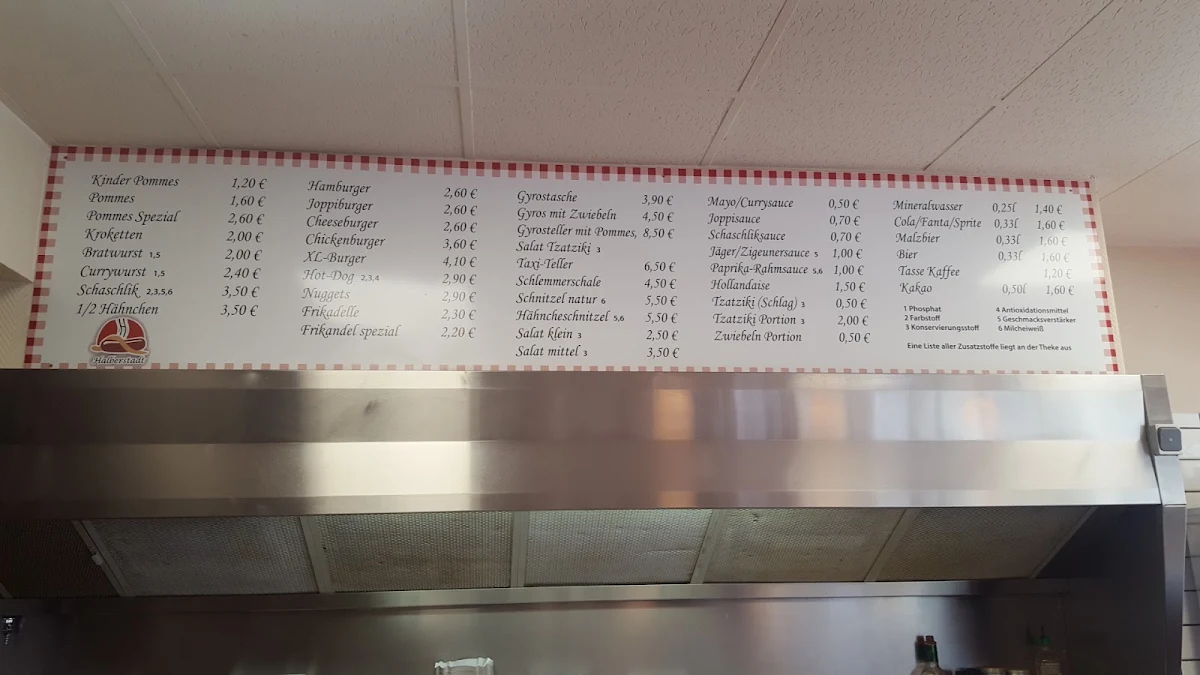 Kinder Pommes 1,20 €
Pommes 1,60 €
Pommes Spezial 2,60 €
Kroketten 2,00 €
Bratwurst 1,5 2,00 €
Currywurst 1,5 2,40 €
Schaschlik 2,3,5,6 3,50 €
1/2 Hähnchen 3,50 €
Halberstadt
Hamburger 2,60 €
Joppiburger 2,60 €
Cheeseburger 2,60 €
Chickenburger 3,60 €
XL-Burger 4,10 €
Hot-Dog 2,3,4 2,90 €
Nuggets 2,90 €
Frikadelle 2,30 €
Frikandel spezial 2,20 €
Gyrostasche 3,90 €
Gyros mit Zwiebeln 4,50 €
Gyrosteller mit Pommes, 8,50 €
Salat Tzatziki 3
Taxi-Teller 6,50 €
Schlemmerschale 4,50 €
Schnitzel natur 6 5,50 €
Hähncheschnitzel 5,6 5,50 €
Salat klein 3 2,50 €
Salat mittel 3 3,50 €
Mayo/Currysauce 0,50 €
Joppisauce 0,70 €
Schaschliksauce 0,70 €
Jäger/Zigeunersauce 5 1,00 €
Paprika-Rahmsauce 5,6 1,00 €
Hollandaise 1,50 €
Tzatziki (Schlag) 3 0,50 €
Tzatziki Portion 3 2,00 €
Zwiebeln Portion 0,50 €
Mineralwasser 0,25l 1,40 €
Cola/Fanta/Sprite 0,33l 1,60 €
Malzbier 0,33l 1,60 €
Bier 0,33l 1,60 €
Tasse Kaffee 1,20 €
Kakao 0,50l 1,60 €
1 Phosphat
2 Farbstoff
3 Konservierungsstoff
4 Antioxidationsmittel
5 Geschmacksverstärker
6 Milcheiweiß
Eine Liste aller Zusatzstoffe liegt an der Theke aus